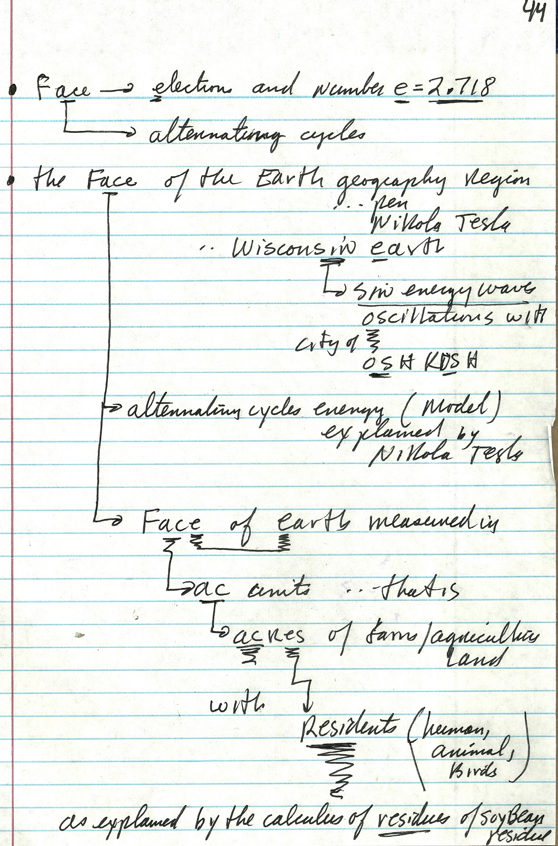 44
• Face → electron and number e = 2.718
→ alternating cycles
• the Face of the Earth geography region
... pen
Nikola Tesla
.. Wisconsin earth
→ sin energy waves
oscillations with
city of
OSHKOSH
→ alternating cycles energy (Model)
explained by
Nikola Tesla
→ Face of earth measured in
→ ac units ... that is
→ acres of farms/agriculture
Land
with
Residents (human,
animal,
Birds)
as explained by the calculus of residues of soyBean
residue